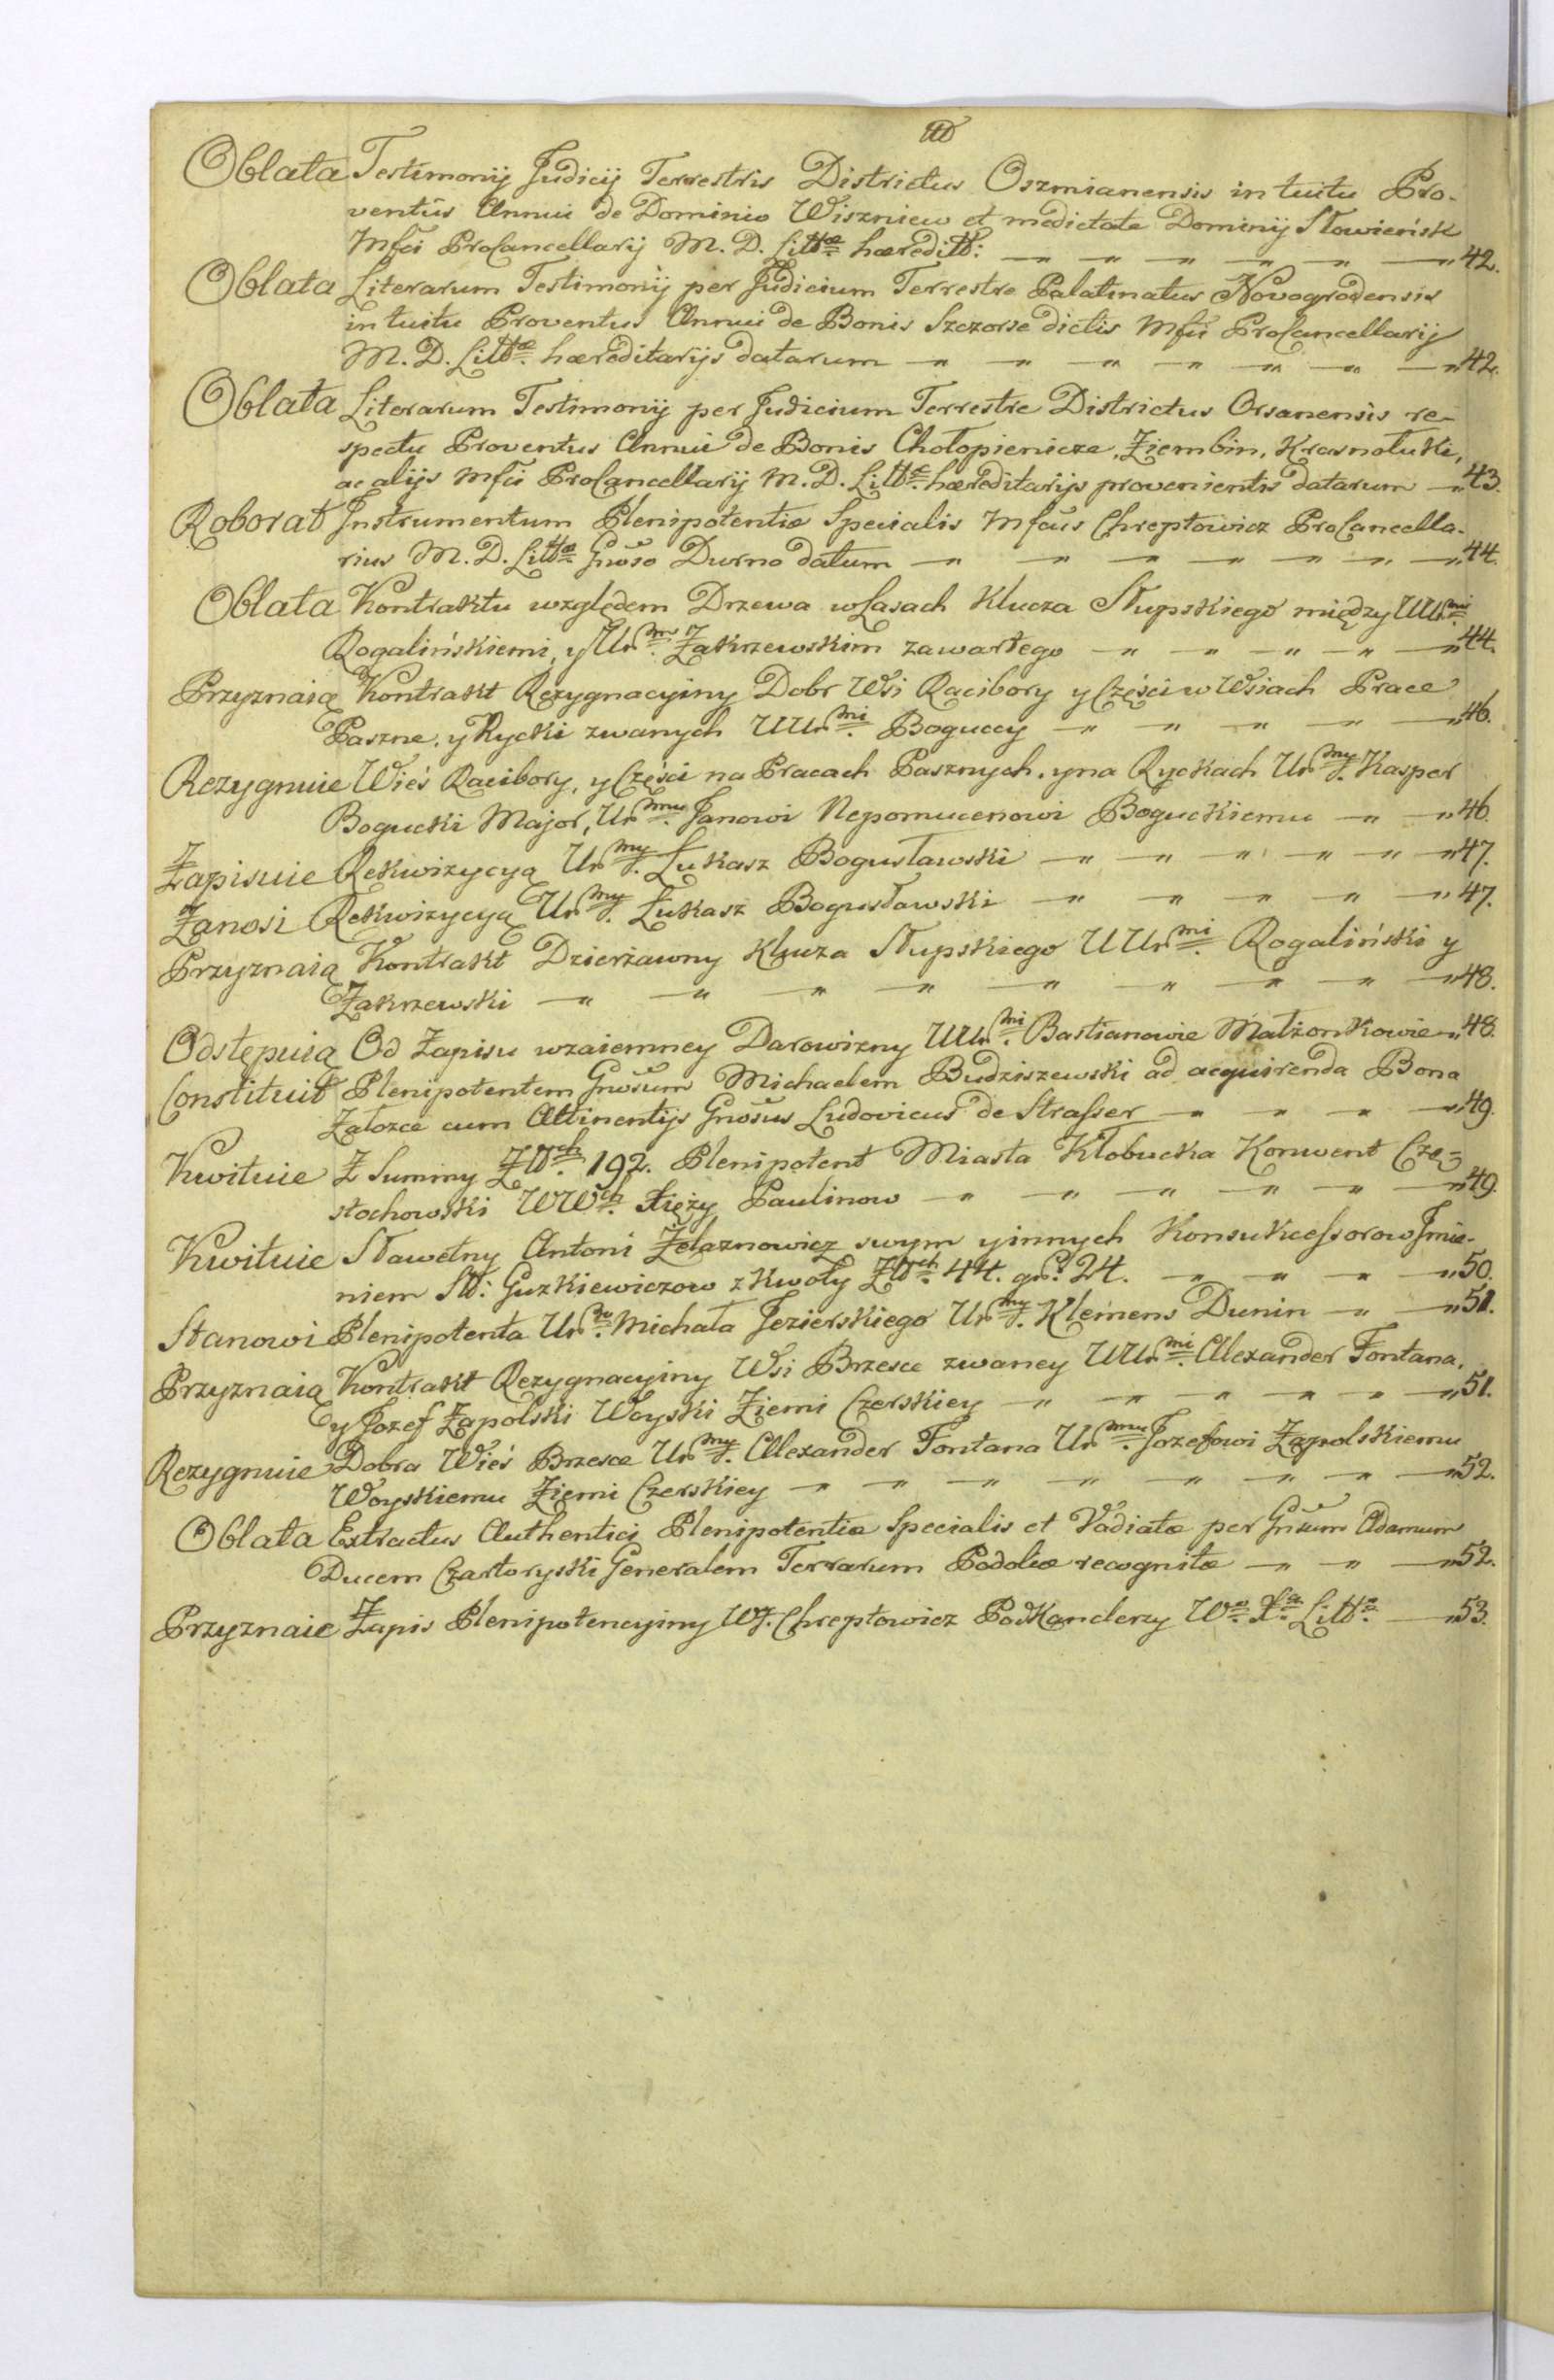 Oblata Testimonij Judicij Terrestris Districtus Oszmianensis intuitu Pro-
ventûs Annui de Dominio Wiszniew et medietate Dominij Słowieńsk
Mfci ProCancellarij M. D. Littæ hæredittt: 42.
Oblata Literarum Testimonij per Judicium Terrestre Palatinatus Novogrodensis
intuitu Proventus Annui de Bonis Szczorse dictis Mfci ProCancellarij
M. D. Littæ hæreditarijs datarum 42.
Oblata Literarum Testimonij per Judicium Terrestre Districtus Orsanensis re-
spectu Proventus Annui de Bonis Chołopienicze, Ziembin, Krasnołuki,
ac alijs Mfci ProCancellarij M. D. Littæ hæreditarijs provenientis datarum 43.
Roborat Instrumentum Plenipotentiæ Specialis Mfcus Chreptowicz ProCancella-
rius M. D. Littæ Gnoso Durno datum 44.
Oblata Kontraktu względem Drzewa w Lasach Klucza Słupskiego między UUrmi
Rogalińskiemi, y Urm Zakrzewskim zawartego 44.
Przyznaią Kontrakt Rezygnacyiny Dobr Wsi Racibory y Części w Wsiach Prace
Paszne, y Rycki zwanych UUrmi Boguccy 46.
Rezygnuie Wieś Racibory, y Części na Pracach Pasznych, y na Ryckach Urmy J. Kasper
Bogucki Major, Urmu Janowi Nepomucenowi Boguckiemu 46.
Zapisuie Rekwizycyą Urmy J. Łukasz Bogusławski 47.
Zanosi Rekwizycyą Urmy J. Łukasz Bogusławski 47.
Przyznaią Kontrakt Dzierżawny Klucza Słupskiego UUrmi Rogaliński y
Zakrzewski 48.
Odstępuią Od Zapisu wzaiemney Darowizny UUrmi Bastianowie Małżonkowie 48.
Constituit Plenipotentem Gnosum Michaelem Budziszewski ad acquirenda Bona
Załozce cum Attinentijs Gnosus Ludovicus de Strasser 49.
Kwituie Z Summy Złłch 192. Plenipotent Miasta Kłobucka Konwent Czę-
stochowski WWch Xięży Paulinow 49.
Kwituie Sławetny Antoni Żelaznowicz swym y innych Konsukcessorow Imie-
niem Sł: Guzkiewiczow z Kwoty Złłch 44. gr. 24. 50.
Stanowi Plenipotenta Uro Michała Jezierskiego Urmy J. Klemens Dunin 51.
Przyznaią Kontrakt Rezygnacyiny Wsi Brzesce zwaney UUrmi Alexander Fontana,
y Jozef Zapolski Woyski Ziemi Czerskiey 51.
Rezygnuie Dobra Wieś Brzesce Urmy J. Alexander Fontana Urmu Jozefowi Zapolskiemu
Woyskiemu Ziemi Czerskiey 52.
Oblata Extractus Authentici Plenipotentiæ Specialis et Vadiatæ per Gnsum Adamum
Ducem Czartoryski Generalem Terrarum Podoliæ recognitæ 52.
Przyznaie Zapis Plenipotencyiny WJ. Chreptowicz PodKanclerzy Wo Xa Litto 53.